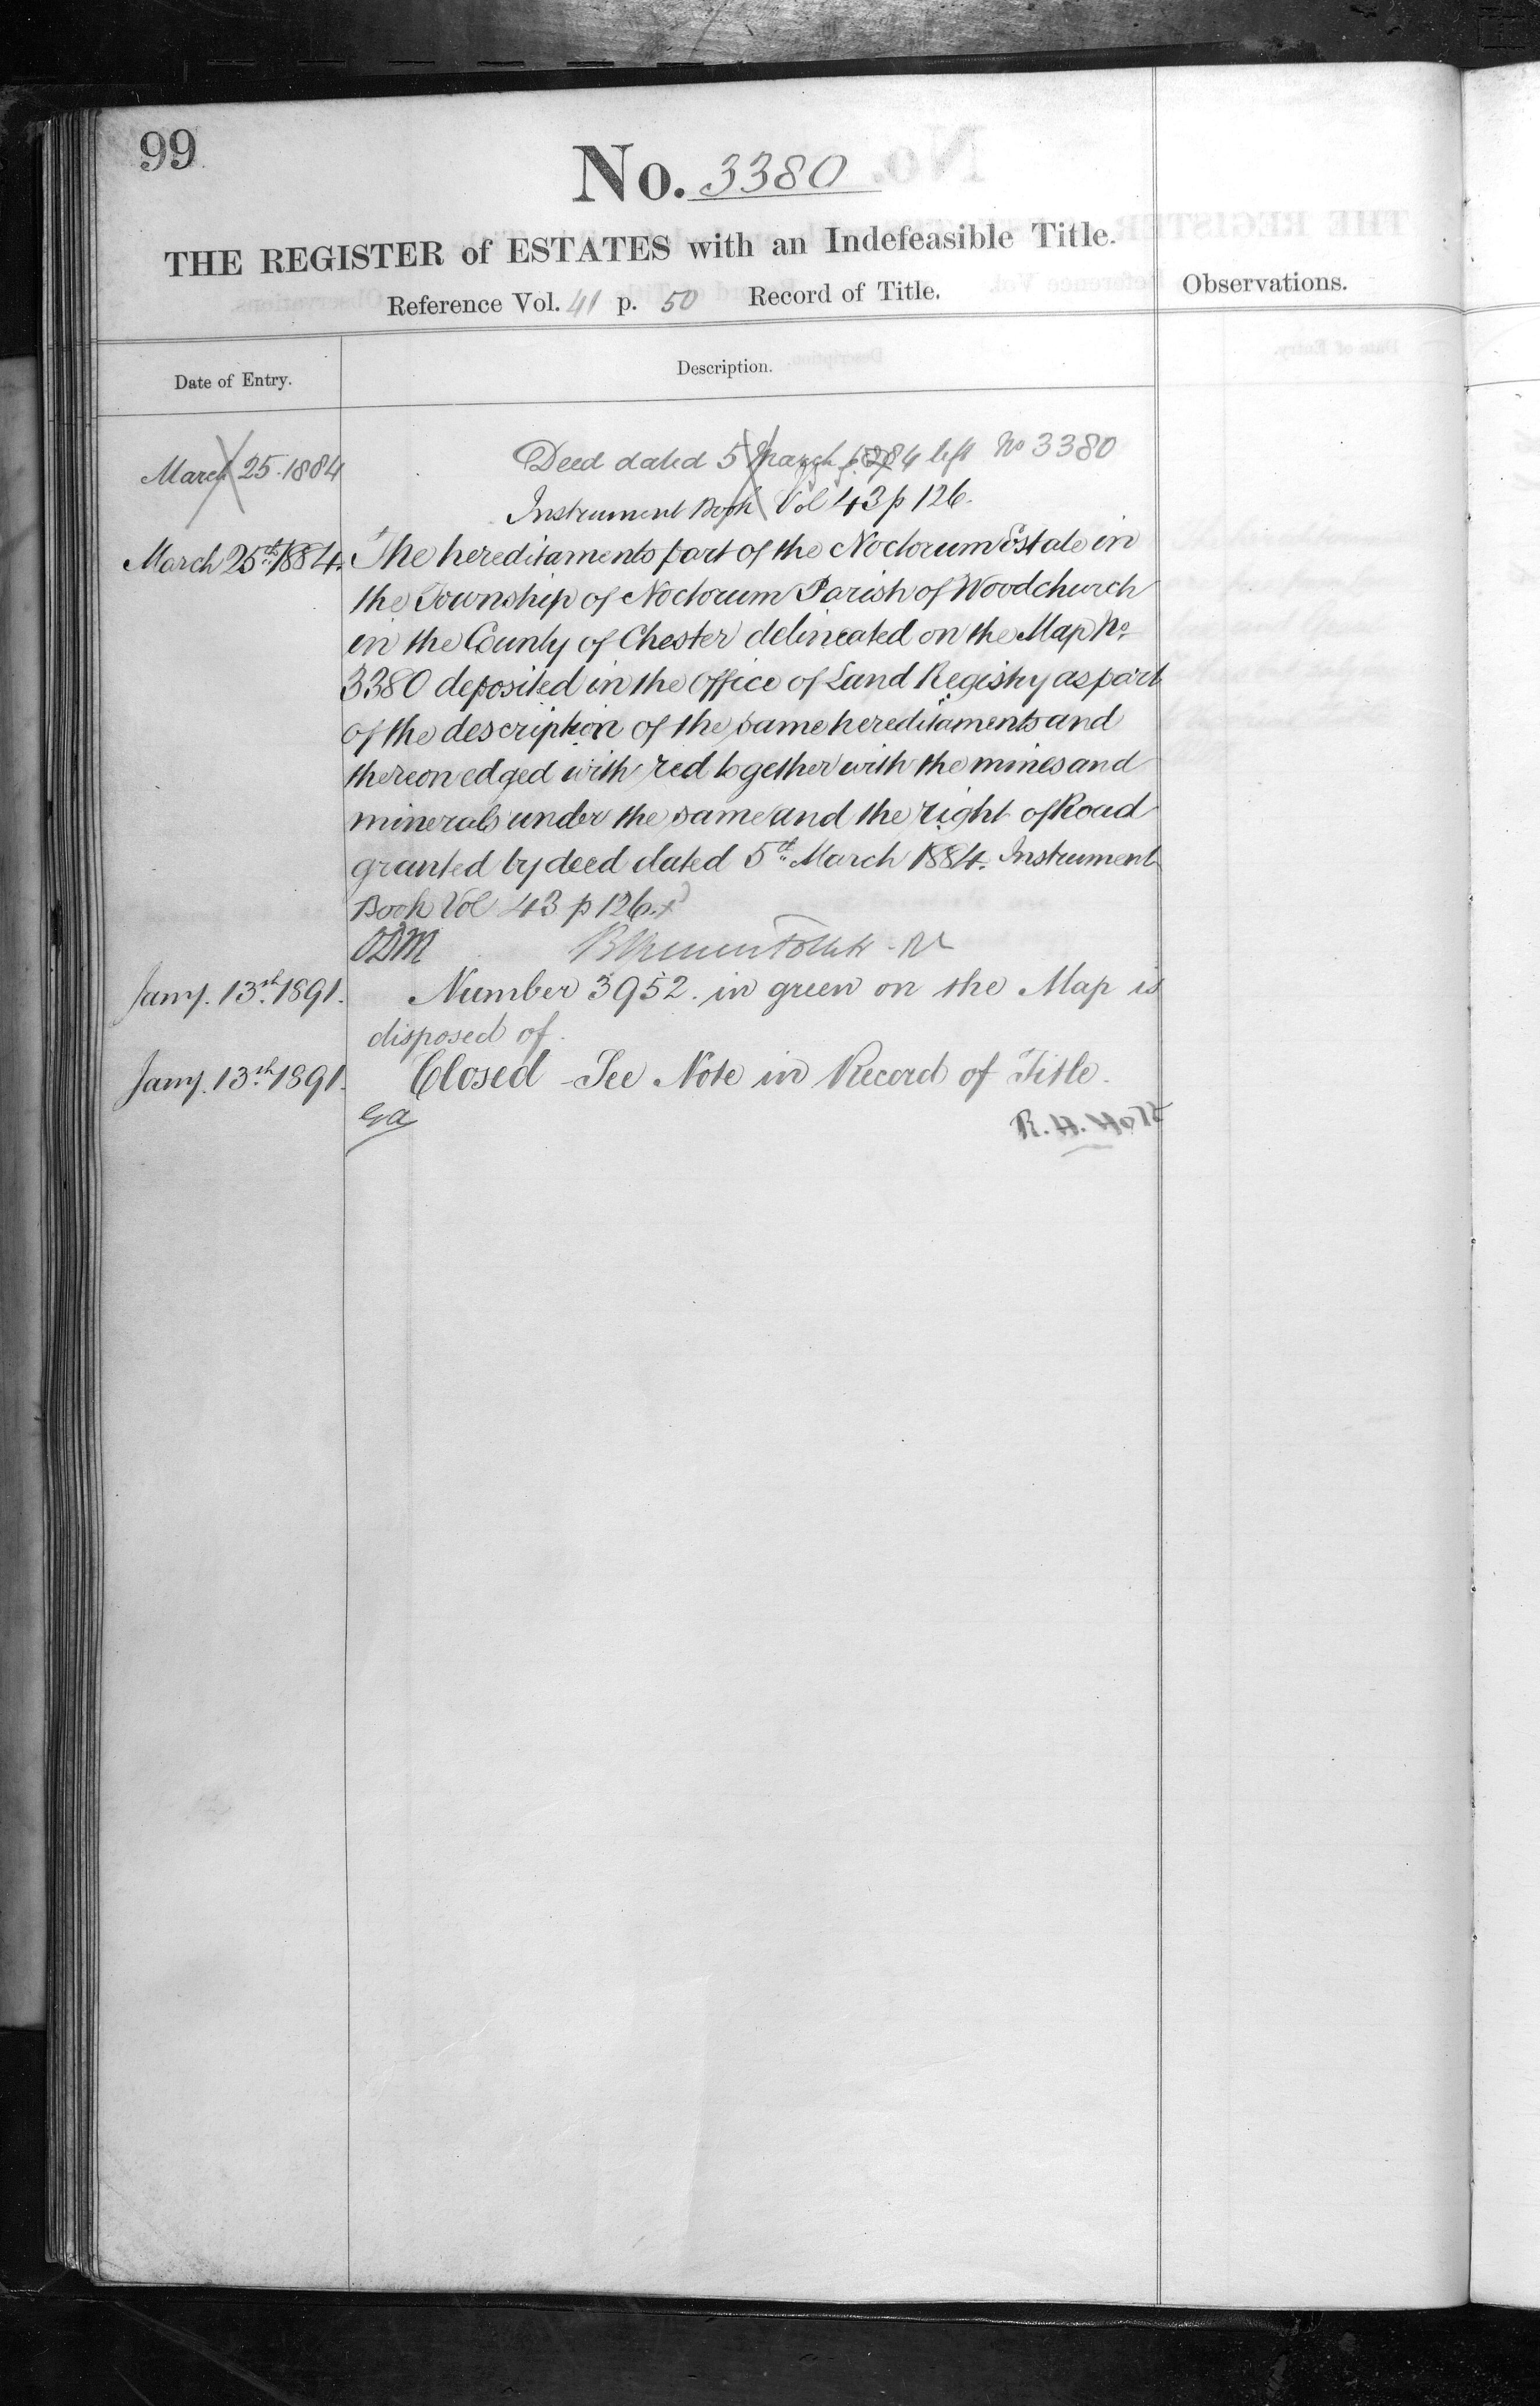 99
No. 3380
THE REGISTER of ESTATES with an Indefeasible Title.
Reference Vol. 41 p. 50 Record of Title.
Observations.
Date of Entry.
Description.
March 25. 1884
Deed dated 5 March 1884 left No 3380
Instrument Book Vol 43 p 126.
March 25th 1884. The hereditaments part of the Noctorum Estate in
the Township of Noctorum Parish of Woodchurch
in the County of Chester delineated on the Map No
3380 deposited in the office of Land Registry as part
of the description of the same hereditaments and
thereon edged with red together with the mines and
minerals under the same and the right of Road
granted by deed dated 5th March 1884. Instrument
Book Vol 43 p 126.
ODM
Jany. 13th 1891. Number 3952. in green on the Map is
disposed of.
Jany. 13th 1891. Closed - See Note in Record of Title.
R. H. Holt